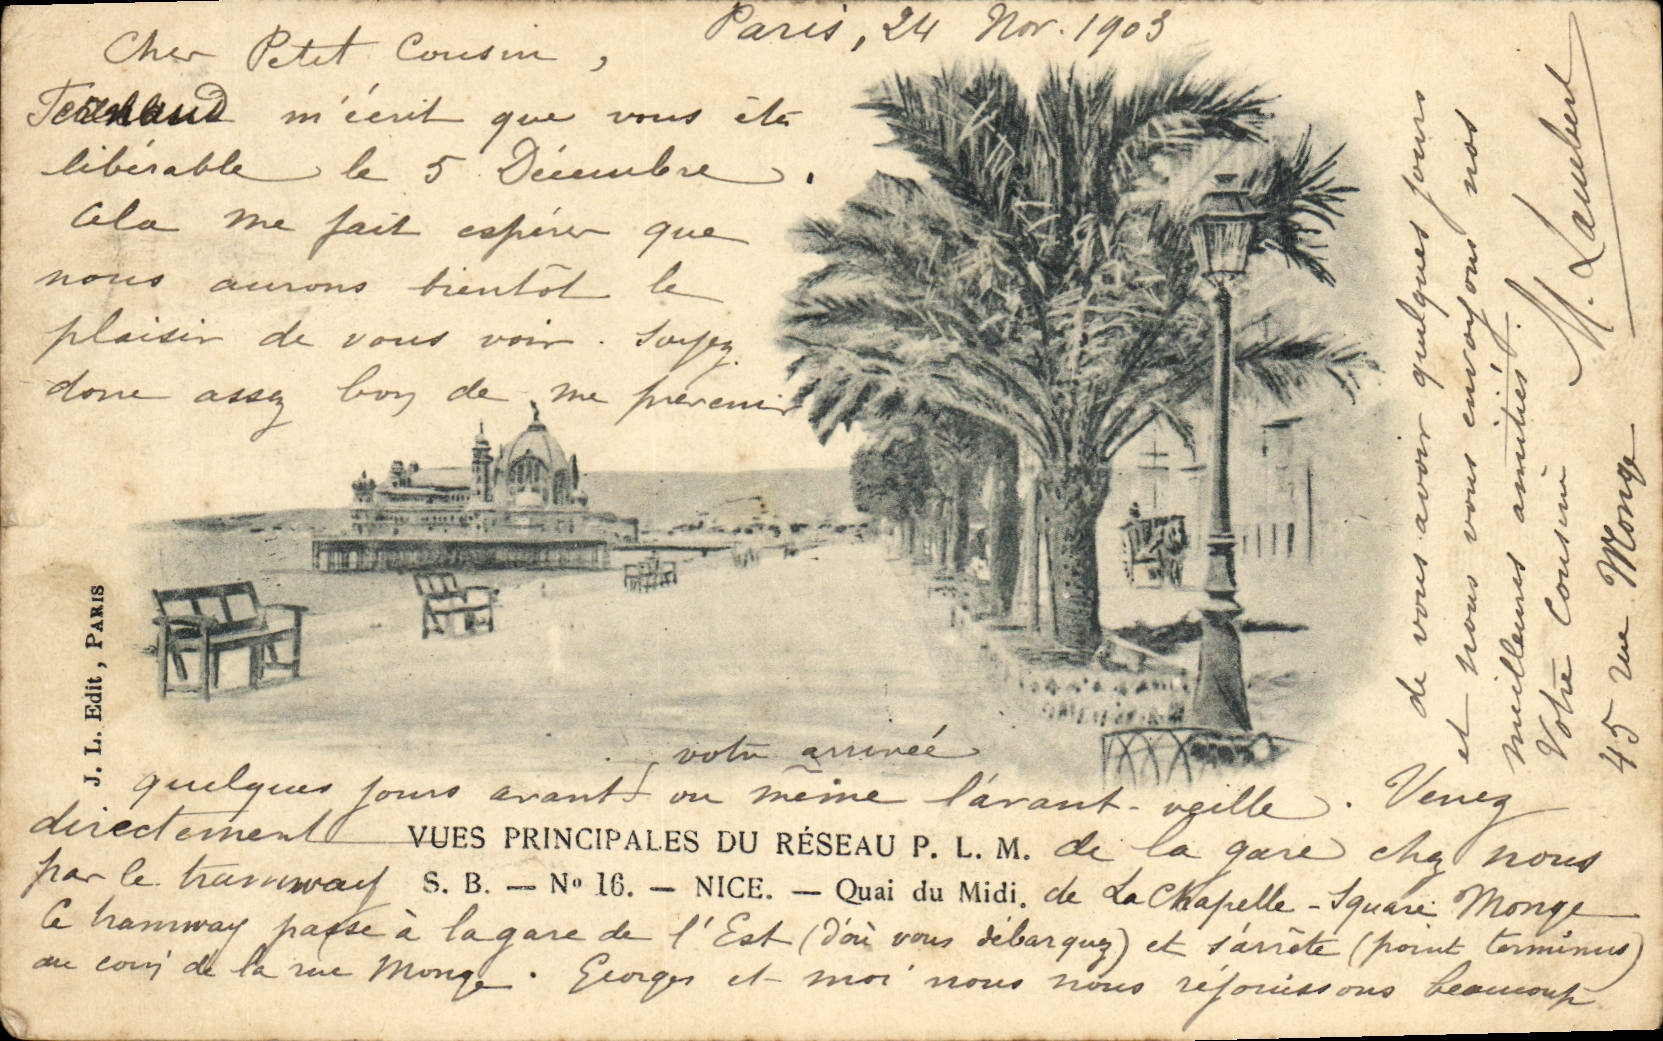 Paris, 24 Nov. 1903
Cher Petit Cousin,
Fernand m'écrit que vous êtes
libérable le 5 Décembre.
Cela me fait espérer que
nous aurons bientôt le
plaisir de vous voir. Soyez
donc assez bon de me prévenir
quelques jours avant votre arrivée ou même l'avant-veille. Venez
directement de la gare chez nous
par le tramway de La Chapelle-Square Monge
Ce tramway passe à la gare de l'Est (d'où vous débarquez) et s'arrête (point terminus)
au coin de la rue Monge. Georges et moi nous nous réjouissons beaucoup
de vous avoir quelques jours
et nous vous envoyons nos
meilleures amitiés.
Votre Cousine M. Lambert
45 rue Monge
J. L. Edit, PARIS
VUES PRINCIPALES DU RÉSEAU P. L. M.
S. B. — No 16. — NICE. — Quai du Midi.